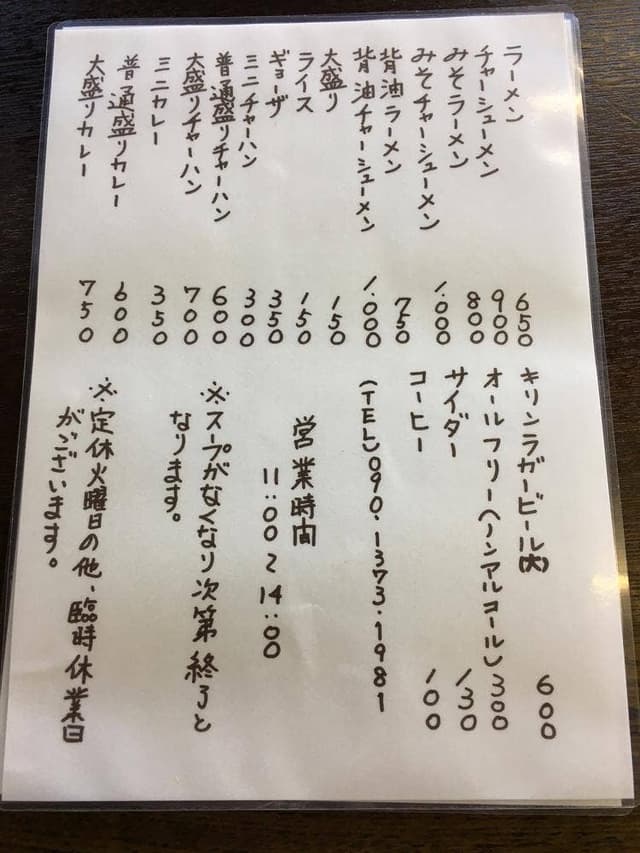 ラーメン 650
チャーシューメン 900
みそラーメン 800
みそチャーシューメン 1.000
背油ラーメン 750
背油チャーシューメン 1.000
大盛り 150
ライス 150
ギョーザ 350
ミニチャーハン 300
普通盛りチャーハン 600
大盛りチャーハン 700
ミニカレー 350
普通盛りカレー 600
大盛りカレー 750
キリンラガービール(大) 600
オールフリー(ノンアルコール) 300
サイダー 130
コーヒー 100
(TEL)090.1373.1981
営業時間
11:00〜14:00
※スープがなくなり次第終了と
なります。
※定休火曜日の他、臨時休業日
がございます。